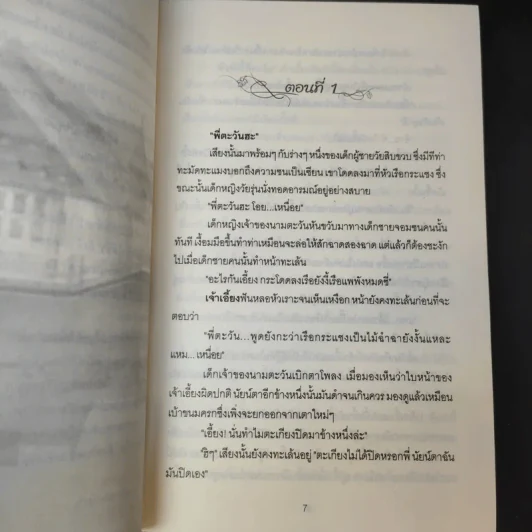 ตอนที่ 1
"พี่ตะวันฮะ"
เสียงนั้นมาพร้อมๆ กับร่างๆ หนึ่งของเด็กผู้ชายวัยสิบขวบ ซึ่งมีทีท่า
ทะมัดทะแมงบอกถึงความซนเป็นเซียน เขาโดดลงมาที่หัวเรือกระแชง ซึ่ง
ขณะนั้นเด็กหญิงวัยรุ่นนั่งทอดอารมณ์อยู่อย่างสบาย
"พี่ตะวันฮะ โอย...เหนื่อย"
เด็กหญิงเจ้าของนามตะวันหันขวับมาทางเด็กชายจอมซนคนนั้น
ทันที เงื้อมมือขึ้นทำท่าเหมือนจะล่อให้สักฉาดสองฉาด แต่แล้วก็ต้องชะงัก
ไปเมื่อเด็กชายคนนั้นทำหน้าทะเล้น
"อะไรกันเอี้ยง กระโดดลงเรือยังงี้เรือแพพังหมดซี่"
เจ้าเอี้ยงฟันหลอหัวเราะจนเห็นเหงือก หน้ายังคงทะเล้นก่อนที่จะ
ตอบว่า
"พี่ตะวัน...พูดยังกะว่าเรือกระแชงเป็นไม้ฉำฉายังงั้นแหละ
แหม... เหนื่อย"
เด็กเจ้าของนามตะวันเบิกตาโพลง เมื่อมองเห็นว่าใบหน้าของ
เจ้าเอี้ยงผิดปกติ นัยน์ตาอีกข้างหนึ่งนั้นมันดำจนเกินควร มองดูแล้วเหมือน
เบ้าขนมครกซึ่งเพิ่งจะยกออกจากเตาใหม่ๆ
"เอี้ยง! นั่นทำไมตะเกียงปิดมาข้างหนึ่งล่ะ"
"ฮิๆ" เสียงนั้นยังคงทะเล้นอยู่ "ตะเกียงไม่ได้ปิดหรอกพี่ นัยน์ตาฉัน
มันปิดเอง"
7